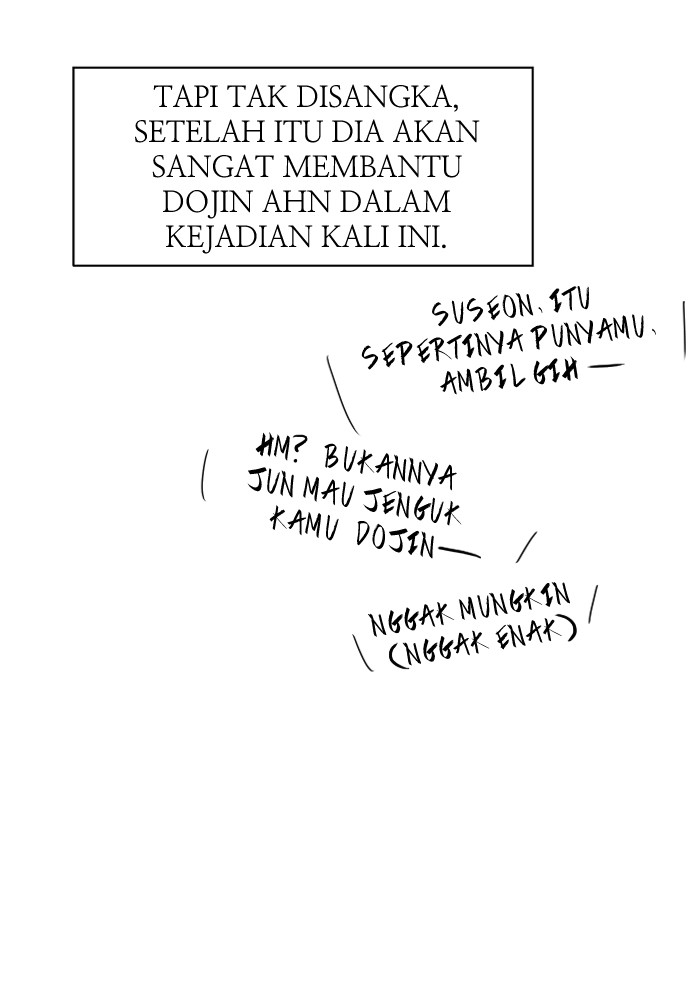 TAPI TAK DISANGKA,
SETELAH ITU DIA AKAN
SANGAT MEMBANTU
DOJIN AHN DALAM
KEJADIAN KALI INI.
SUSEON, ITU
SEPERTINYA PUNYAMU,
AMBIL GIH —
HM? BUKANNYA
JUN MAU JENGUK
KAMU DOJIN—
NGGAK MUNGKIN
(NGGAK ENAK)